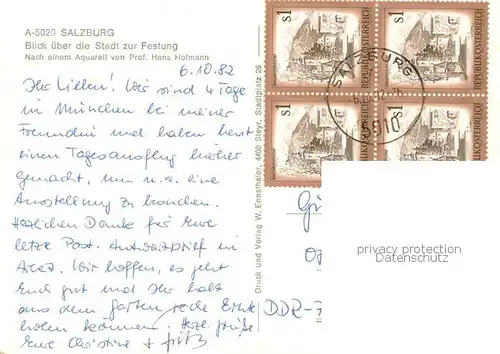 A-5020 SALZBURG
Blick über die Stadt zur Festung
Nach einem Aquarell von Prof. Hans Hofmann
6.10.82
Ihr Lieben! Wir sind 4 Tage
in München bei meiner
Freundin und haben heut
einen Tagesausflug hierher
gemacht, um u.a. eine
Ausstellung zu besuchen.
Herzlichen Dank für Eure
letzte Post. Antwortbrief in
Arbeit. Wir hoffen, es geht
Euch gut und Ihr habt
aus dem Garten reiche Ernte
holen können. Herzl. Grüße
Eure Christine + Fritz
Druck und Verlag W. Ennsthaler, 4400 Steyr, Stadtplatz 26
S1
REPUBLIK ÖSTERREICH
S1
REPUBLIK ÖSTERREICH
S1
S1
SALZBURG
5010
privacy protection
Datenschutz
DDR-7